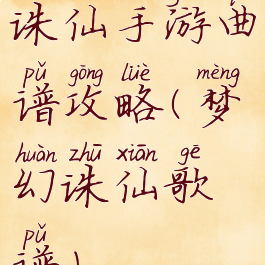 诛仙手游曲
pǔ gōng lüè mèng
谱攻略(梦
huàn zhū xiān gē
幻诛仙歌
pǔ
谱)